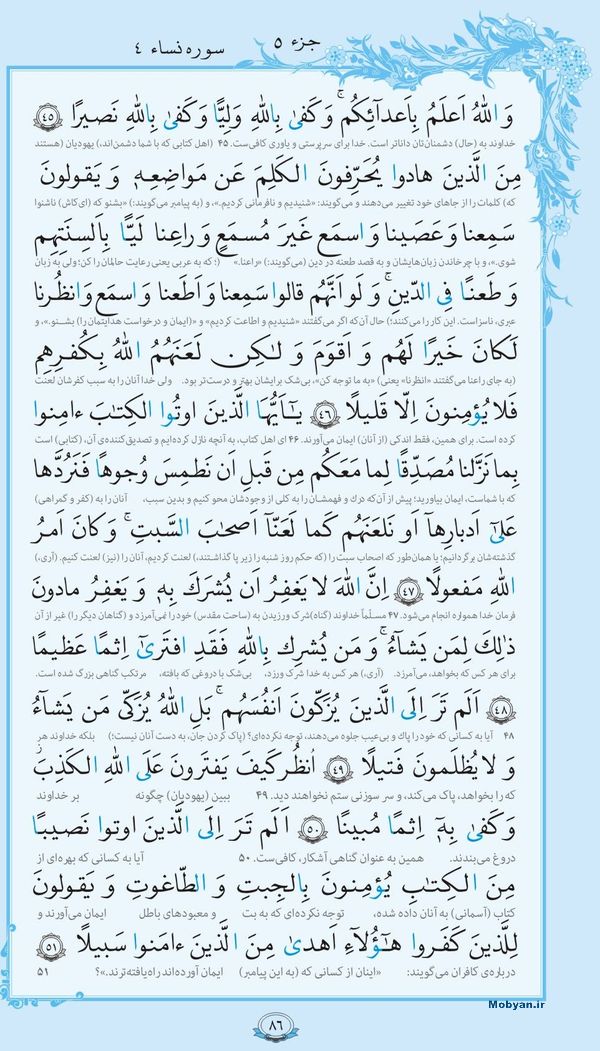 جزء ۵
سوره نساء ۴
وَ اللهُ اَعلَمُ بِاَعدآئِكُم ۚ وَ كَفىٰ بِاللهِ وَلِيًّا وَ كَفىٰ بِاللهِ نَصيرًا ﴿۴۵﴾
خداوند به (حال) دشمنان‌تان داناتر است. خدا برای سرپرستی و یاوری کافی‌ست. ۴۵ (اهل کتابی که با شما دشمن‌اند،) یهودیان (هستند
مِنَ الَّذينَ هادوا يُحَرِّفونَ الكَلِمَ عَن مَواضِعِهٖ وَ يَقولونَ
که) کلمات را از جاهای خود تغییر می‌دهند و می‌گویند: «شنیدیم و نافرمانی کردیم.»، و (به پیامبر می‌گویند:) «بشنو که (ای‌کاش) ناشنوا
سَمِعنا وَ عَصَينا وَ اسمَع غَيرَ مُسمَعٍ وَ راعِنا لَيًّا بِاَلسِنَتِهِم
شوی.»، و با چرخاندن زبان‌هایشان و به قصد طعنه در دین (می‌گویند:) «راعنا.» (؛ که به عربی یعنی رعایت حالمان را کن؛ ولی به زبان
وَ طَعنًا فِى الدّينِ ۚ وَ لَو اَنَّهُم قالوا سَمِعنا وَ اَطَعنا وَ اسمَع وَ انظُرنا
عبری، ناسزاست. این کار را می‌کنند؛) حال آن‌که اگر می‌گفتند «شنیدیم و اطاعت کردیم» و «(ایمان و درخواست هدایتمان را) بشنو.»، و
لَكانَ خَيرًا لَهُم وَ اَقوَمَ وَ لٰكِن لَعَنَهُمُ اللهُ بِكُفرِهِم
(به جای راعنا می‌گفتند «انظرنا» یعنی) «به ما توجه کن»، بی‌شک برایشان بهتر و درست‌تر بود. ولی خدا آنان را به سبب کفرشان لعنت
فَلا يُؤمِنونَ اِلّا قَليلًا ﴿۴۶﴾ يٰٓاَيُّهَا الَّذينَ اوتُوا الكِتٰبَ ءامِنوا
کرده است. برای همین، فقط اندکی (از آنان) ایمان می‌آورند. ۴۶ ای اهل کتاب، به آنچه نازل کرده‌ایم و تصدیق‌کننده‌ی آن، (کتابی) است
بِما نَزَّلنا مُصَدِّقًا لِما مَعَكُم مِن قَبلِ اَن نَطمِسَ وُجوهًا فَنَرُدَّها
که با شماست، ایمان بیاورید؛ پیش از آن‌که درک و فهمشان را به کلی از وجودشان محو کنیم و بدین سبب، آنان را به (کفر و گمراهی)
عَلىٰٓ اَدبارِهآ اَو نَلعَنَهُم كَما لَعَنّآ اَصحٰبَ السَّبتِ ۚ وَ كانَ اَمرُ
گذشته‌شان برگردانیم؛ یا همان‌طور که اصحاب سبت را (که حکم روز شنبه را زیر پا گذاشتند،) لعنت کردیم، آنان را (نیز) لعنت کنیم. (آری،)
اللهِ مَفعولًا ﴿۴۷﴾ اِنَّ اللهَ لا يَغفِرُ اَن يُشرَكَ بِهٖ وَ يَغفِرُ مادونَ
فرمان خدا همواره انجام می‌شود. ۴۷ مسلّماً خداوند (گناه) شرک ورزیدن به (ساحت مقدس) خود را نمی‌آمرزد و (گناهان دیگر را) غیر از آن
ذٰلِكَ لِمَن يَشآءُ ۚ وَ مَن يُشرِك بِاللهِ فَقَدِ افتَرىٰٓ اِثمًا عَظيمًا
برای هر کس که بخواهد، می‌آمرزد. (آری،) هر کس به خدا شرک ورزد، بی‌شک با دروغی که بافته، مرتکب گناهی بزرگ شده است.
﴿۴۸﴾ اَلَم تَرَ اِلَى الَّذينَ يُزَكّونَ اَنفُسَهُم ۚ بَلِ اللهُ يُزَكّى مَن يَشآءُ
۴۸ آیا به کسانی که خود را پاک و بی‌عیب جلوه می‌دهند، توجه نکرده‌ای؟ (پاک کردن جان، به دست آنان نیست؛) بلکه خداوند هر
وَ لا يُظلَمونَ فَتيلًا ﴿۴۹﴾ اُنظُر كَيفَ يَفتَرونَ عَلَى اللهِ الكَذِبَ ۖ
که را بخواهد، پاک می‌کند، و سر سوزنی ستم نخواهند دید. ۴۹ ببین (یهودیان) چگونه بر خداوند
وَ كَفىٰ بِهٖٓ اِثمًا مُبينًا ﴿۵۰﴾ اَلَم تَرَ اِلَى الَّذينَ اوتوا نَصيبًا
دروغ می‌بندند. همین به عنوان گناهی آشکار، کافی‌ست. ۵۰ آیا به کسانی که بهره‌ای از
مِنَ الكِتٰبِ يُؤمِنونَ بِالجِبتِ وَ الطّاغوتِ وَ يَقولونَ
کتاب (آسمانی) به آنان داده شده، توجه نکرده‌ای که به بت و معبودهای باطل ایمان می‌آورند و
لِلَّذينَ كَفَروا هٰٓؤُلآءِ اَهدىٰ مِنَ الَّذينَ ءامَنوا سَبيلًا ﴿۵۱﴾
درباره‌ی کافران می‌گویند: «اینان از کسانی که (به این پیامبر) ایمان آورده‌اند راه‌یافته‌ترند.»؟ ۵۱
Mobyan.ir
۸۶